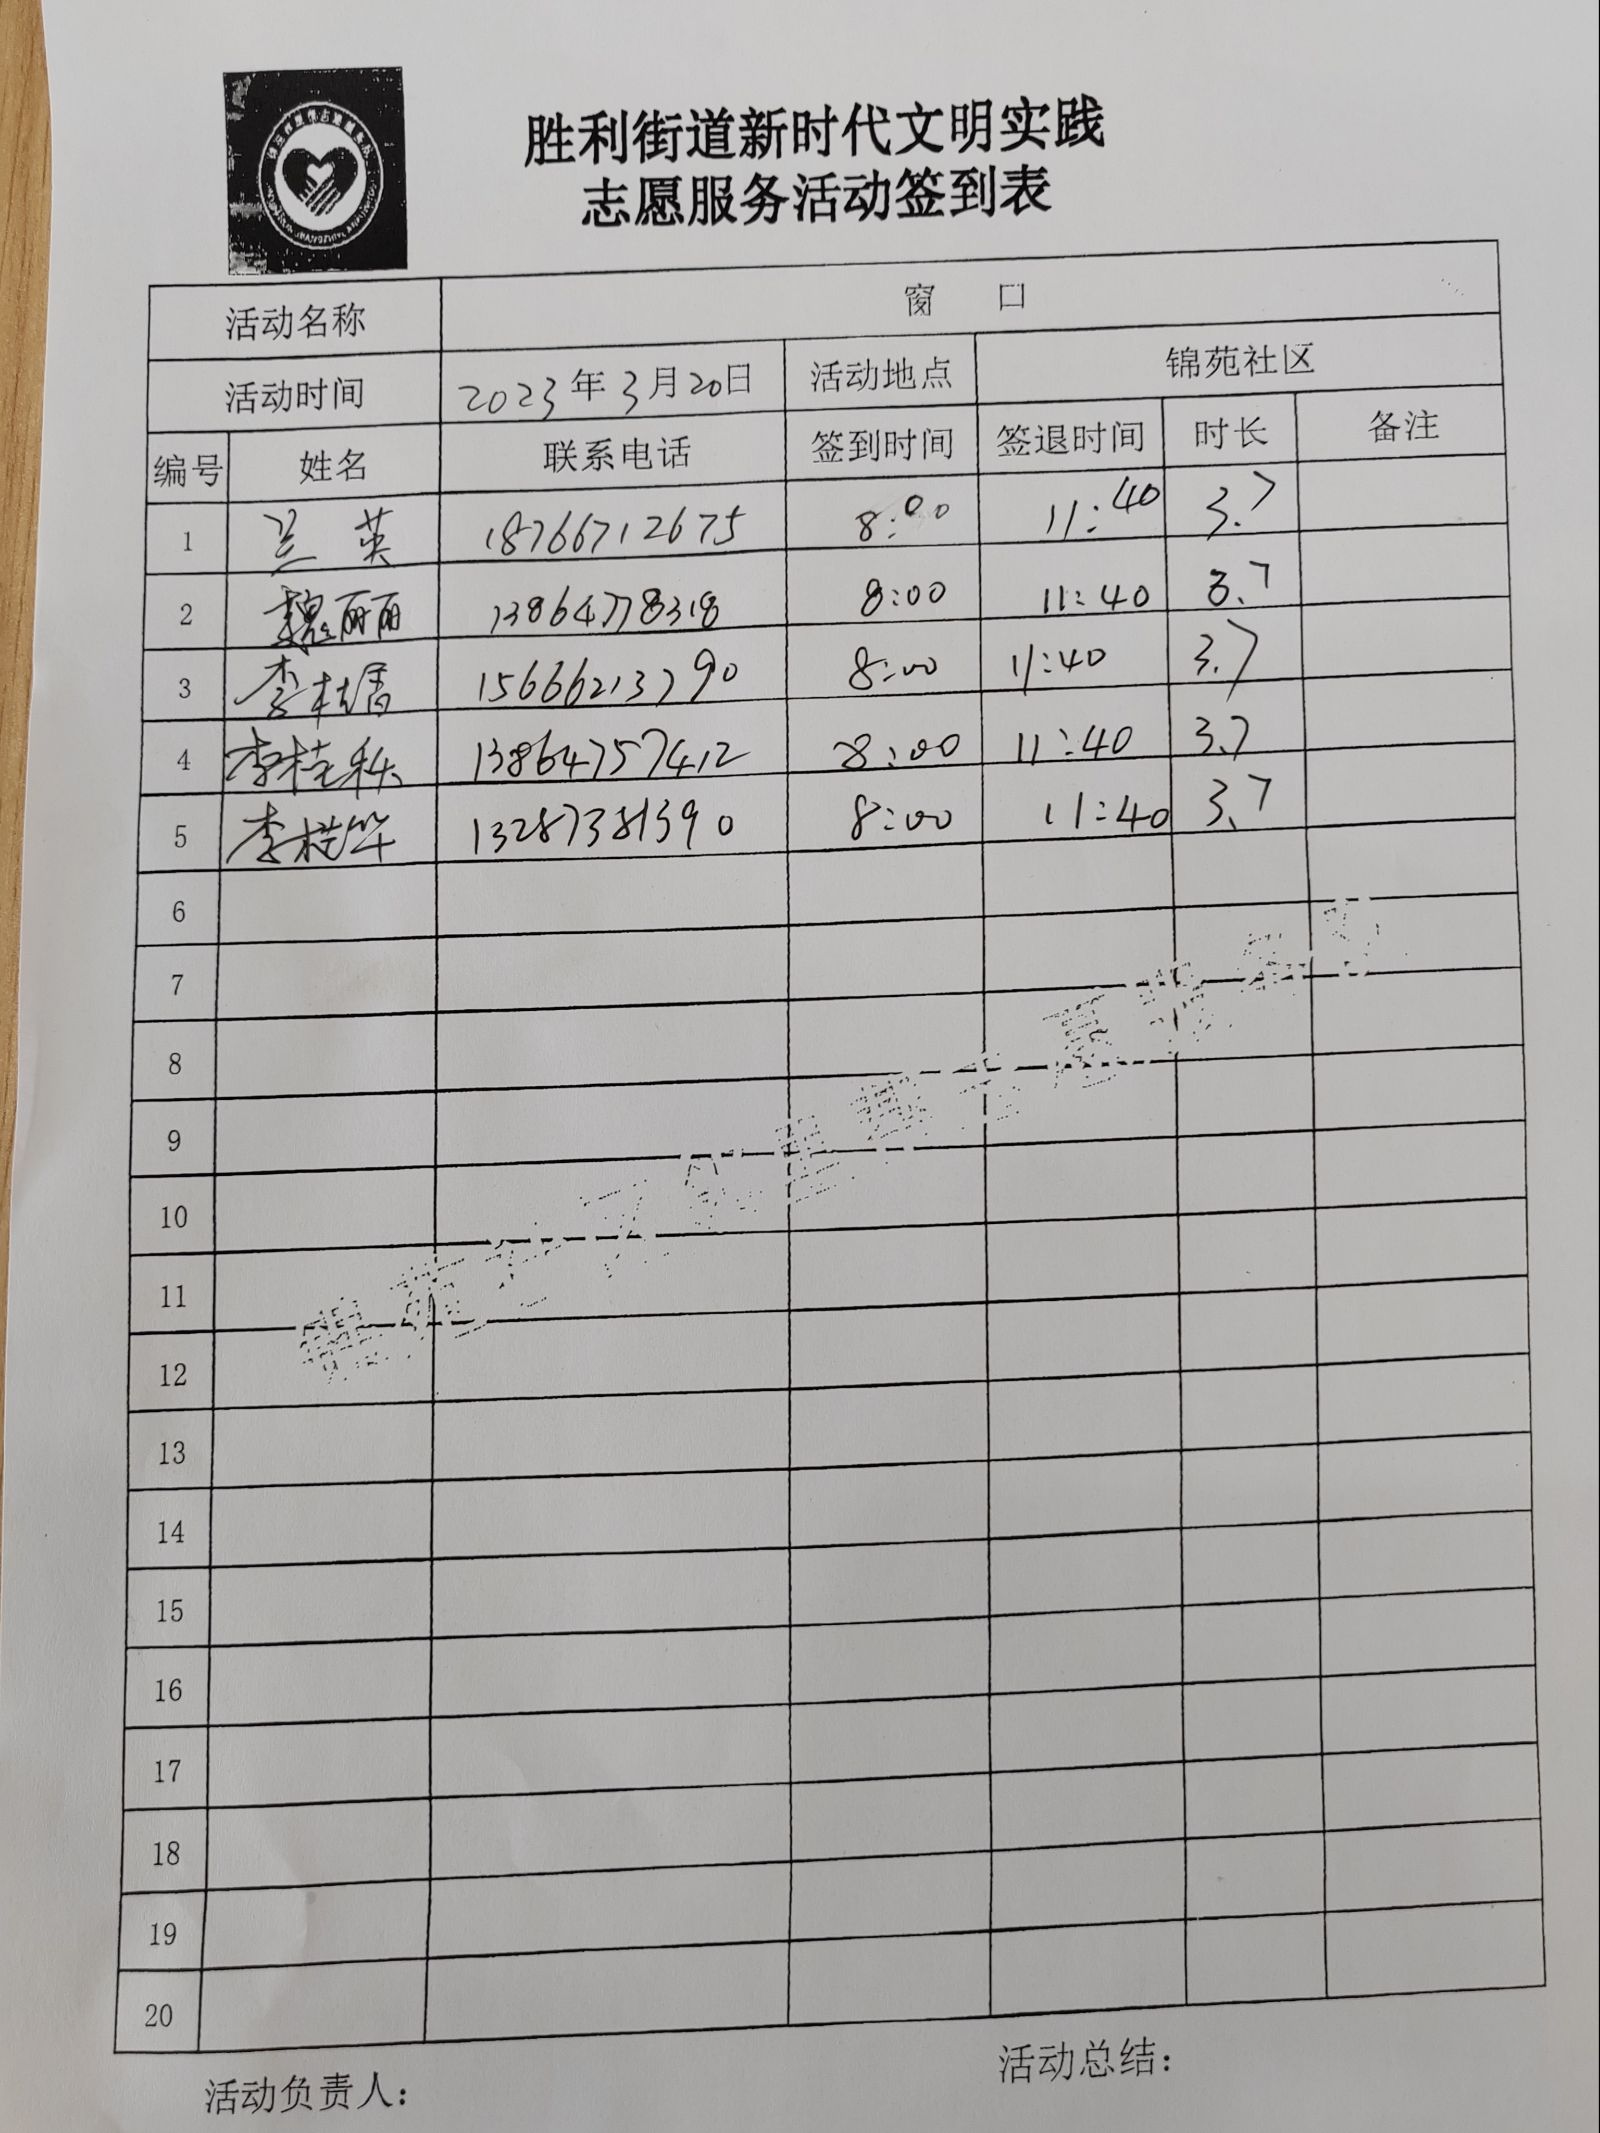 胜利街道新时代文明实践
志愿服务活动签到表
活动名称 窗 口
活动时间 2023年3月20日 活动地点 锦苑社区
编号 姓名 联系电话 签到时间 签退时间 时长 备注
1 兰英 18766712675 8:00 11:40 3.7
2 魏丽丽 13864778318 8:00 11:40 3.7
3 李桂香 15666213790 8:00 11:40 3.7
4 李桂秋 13864757412 8:00 11:40 3.7
5 李桂华 13287381390 8:00 11:40 3.7
6
7
8
9
10
11
12
13
14
15
16
17
18
19
20
活动负责人: 活动总结: